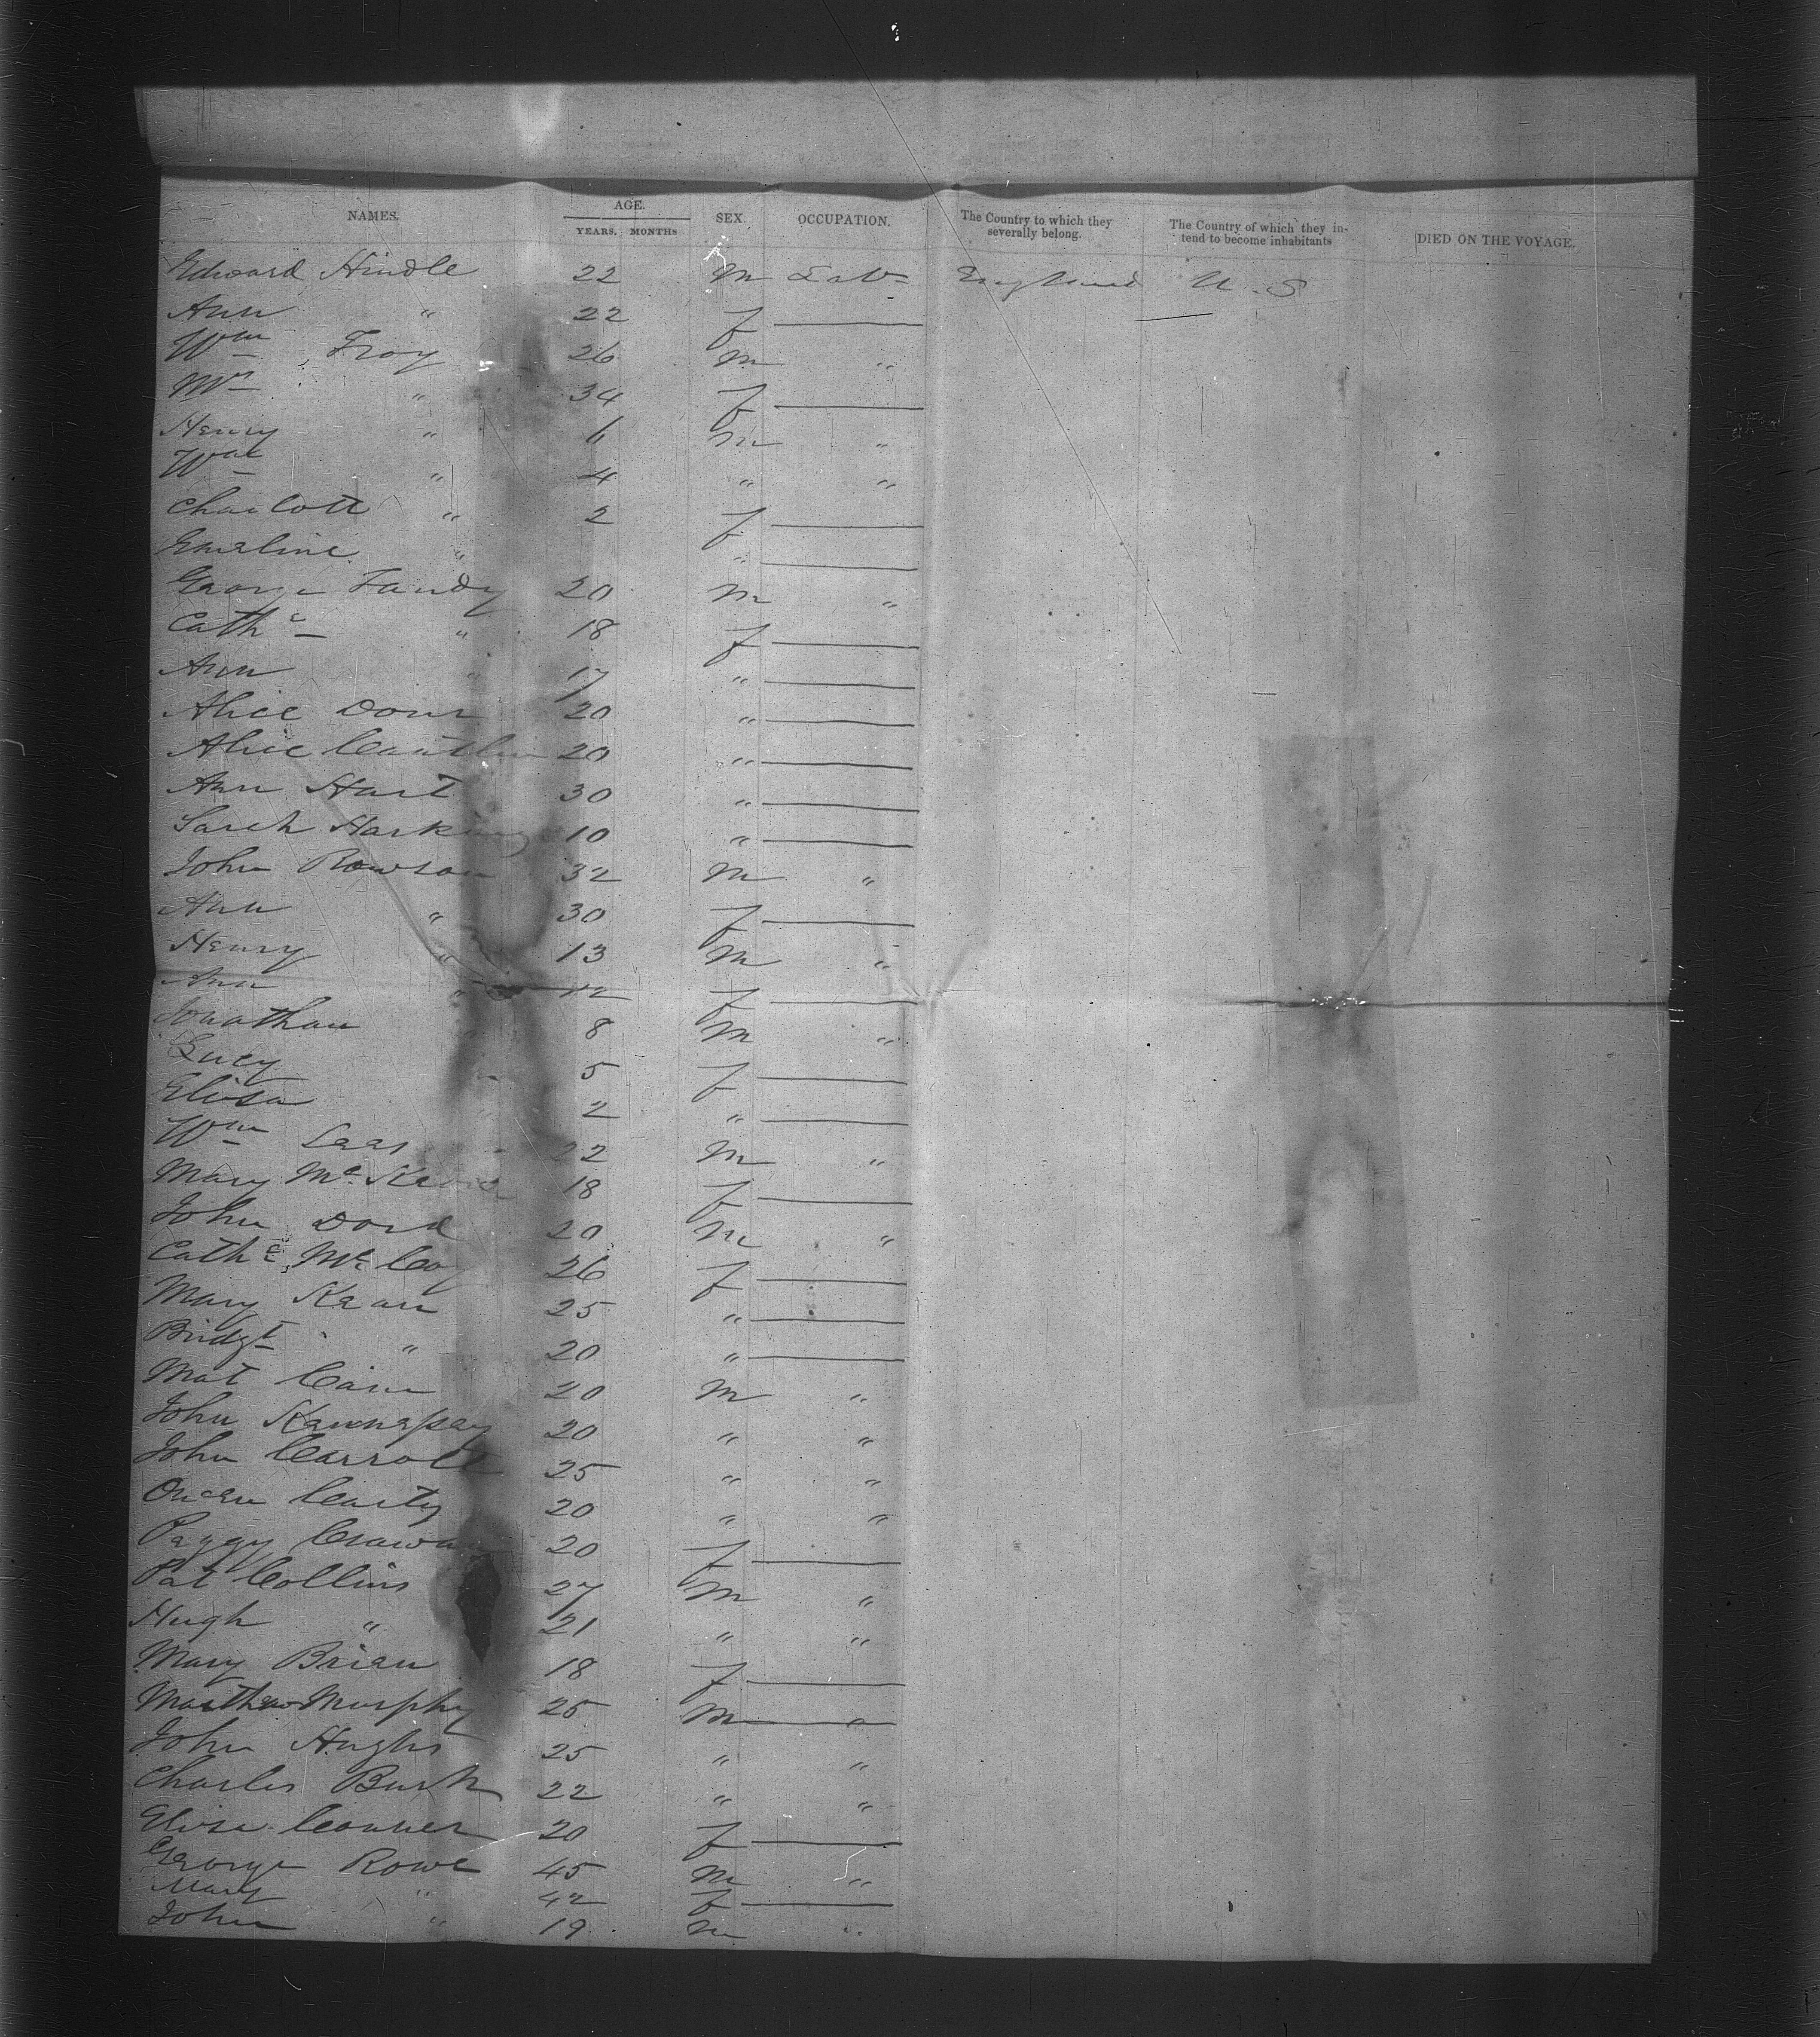 NAMES. AGE. SEX. OCCUPATION. The Country to which they severally belong. The Country of which they intend to become inhabitants DIED ON THE VOYAGE.
YEARS. MONTHS
Edward Hindle 22 m Labr England U.S
Ann " 22 f
Wm Froy 26 m "
Mrs " 34 f
Henry " 6 m "
Wm " 4 " "
Charlott " 2 f
Emeline " "
George Fandy 20 m "
Cathe " 18 f
Ann " 17 "
Alice 20 "
Alice 20 "
Ann Hart 30 "
Sarah 10 "
John Rowson 32 m "
Ann " 30 f
Henry " 13 m "
Ann " 12 f
Jonathan 8 m "
Lucy 5 f
Elisa 2 "
Wm Lees 22 m "
Mary Mc 18 f
John Dord 20 m "
Cathe Mc Coy 26 f
Mary Kean 25 "
Bridgt " 20 "
Mat Cain 20 m "
John 20 " "
John Carroll 25 " "
Owen Carty 20 " "
Peggy 20 f
Pat Collins 27 m "
Hugh " 21 " "
Mary Brien 18 f
Murphy 25 m "
John Hughs 25 " "
Charles Burk 22 " "
Elisa Conner 20 f
George Rowe 45 m "
Mary " 42 f
John " 19 m "